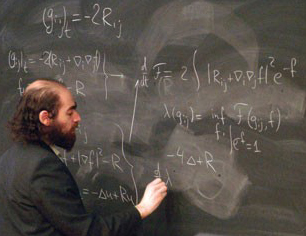 (g_ij)_t = -2R_ij
(g_ij)_t = -2(R_ij + ∇_i∇_j f)
d/dt F = 2 ∫ |R_ij + ∇_i∇_j f|² e^-f
λ(g_ij) = inf F(g_ij, f)
f, ∫e^-f = 1
+ |∇f|² - R
-4Δ + R
= -Δu + Ru
d/dt λ